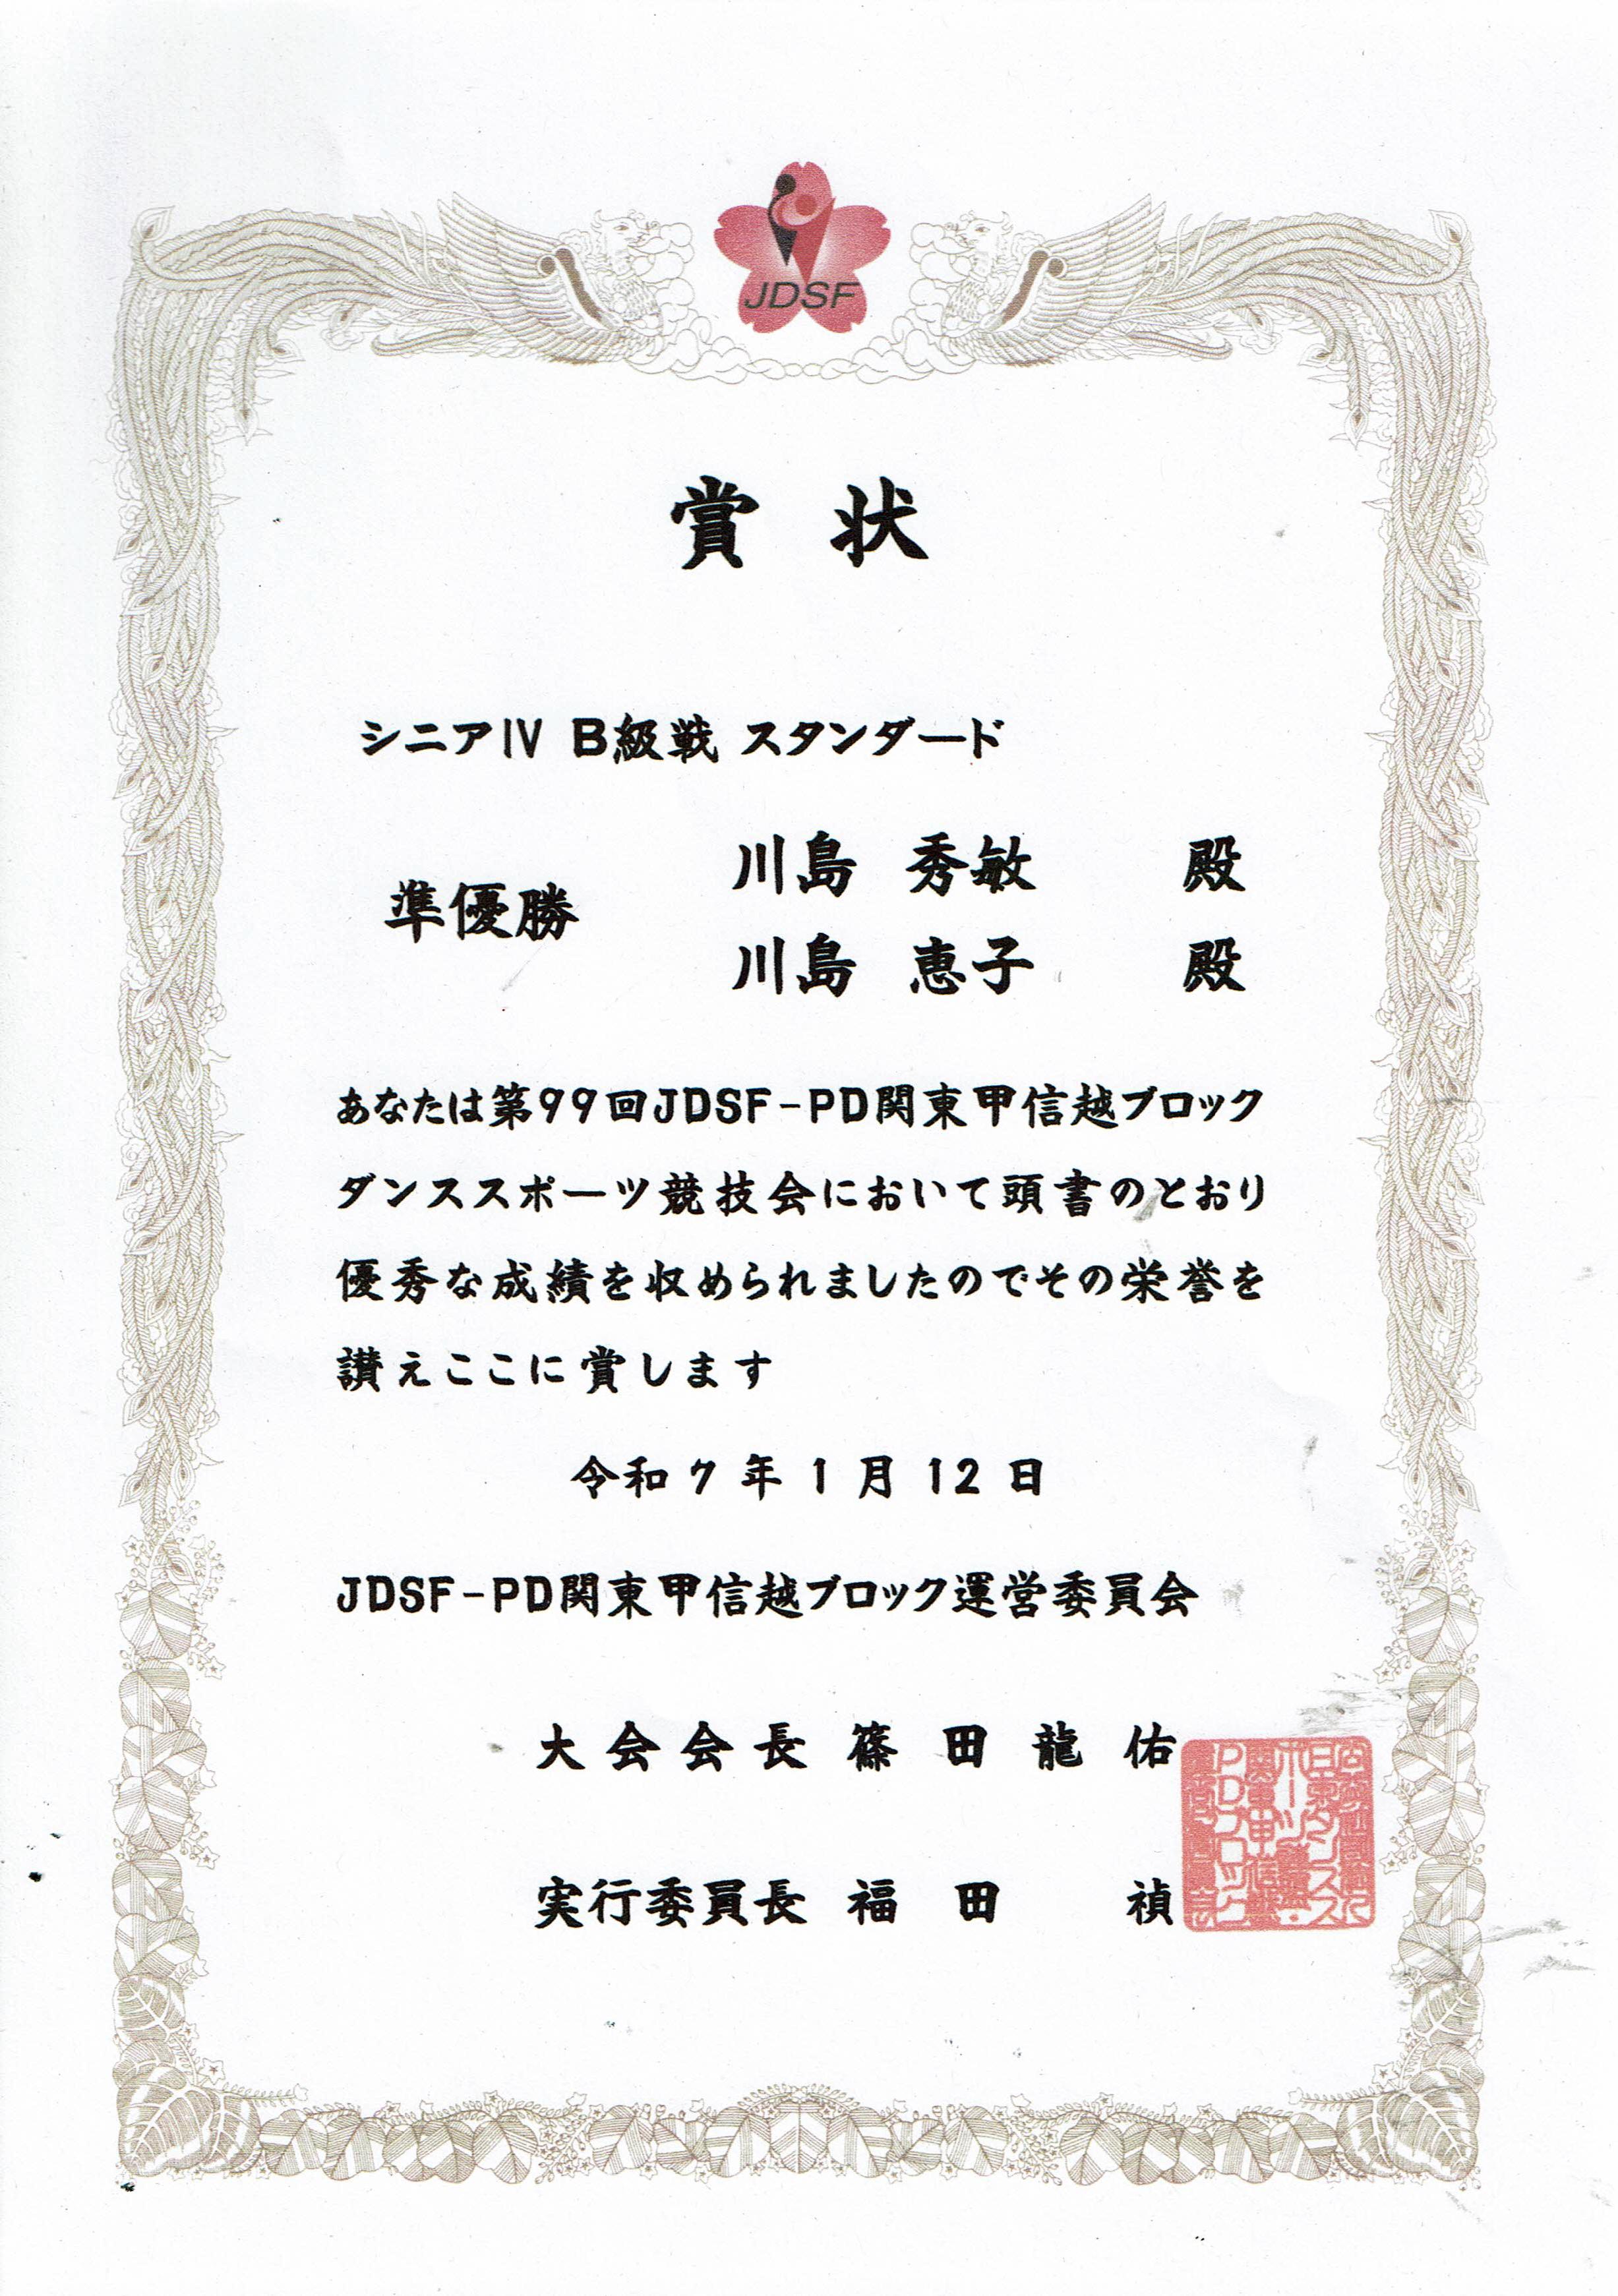 JDSF
賞状
シニアⅣ B級戦 スタンダード
準優勝
川島 秀敏 殿
川島 恵子 殿
あなたは第99回JDSF-PD関東甲信越ブロック
ダンススポーツ競技会において頭書のとおり
優秀な成績を収められましたのでその栄誉を
讃えここに賞します
令和7年1月12日
JDSF-PD関東甲信越ブロック運営委員会
大会会長 篠田龍佑
実行委員長 福田 禎